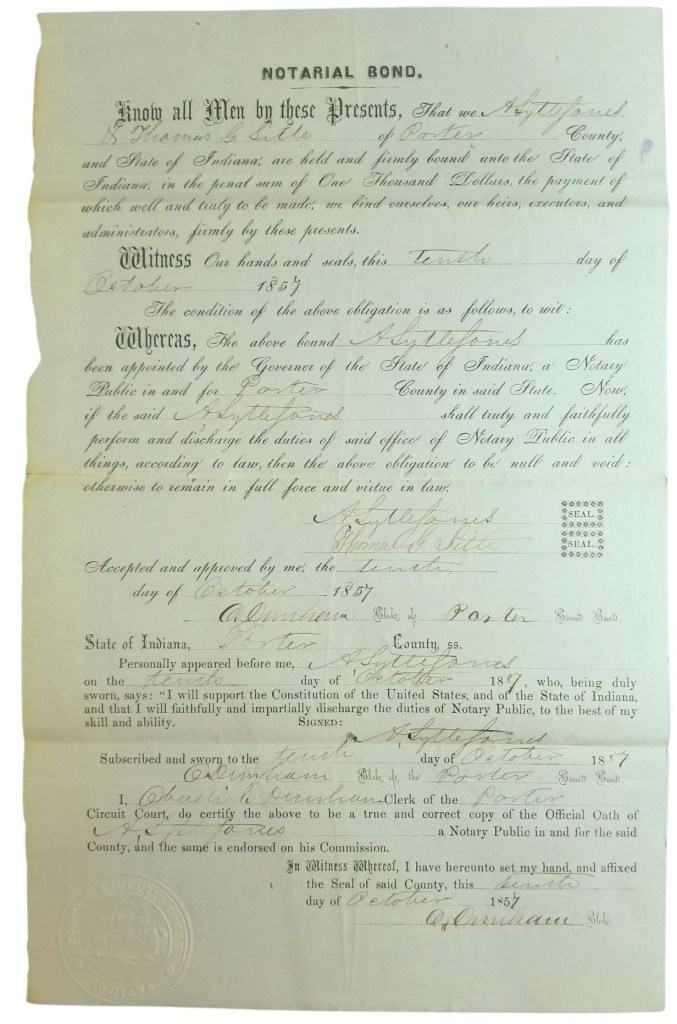 NOTARIAL BOND.
Know all Men by these Presents, That we A Lytle Jones
& Thomas G. Lytle of Porter County,
and State of Indiana, are held and firmly bound unto the State of
Indiana, in the penal sum of One Thousand Dollars, the payment of
which well and truly to be made, we bind ourselves, our heirs, executors, and
administrators, firmly by these presents.
Witness Our hands and seals, this tenth day of
October 1857
The condition of the above obligation is as follows, to wit:
Whereas, The above bound A Lytle Jones has
been appointed by the Governor of the State of Indiana, a Notary
Public in and for Porter County in said State. Now,
if the said A Lytle Jones shall truly and faithfully
perform and discharge the duties of said office of Notary Public in all
things, according to law, then the above obligation to be null and void:
otherwise to remain in full force and virtue in law.
A Lytle Jones SEAL.
Thomas G. Lytle SEAL.
Accepted and approved by me, the tenth
day of October 1857
O. Dunham Clerk of Porter Circuit Court.
State of Indiana, Porter County, ss.
Personally appeared before me, A Lytle Jones
on the tenth day of October 1857, who, being duly
sworn, says: "I will support the Constitution of the United States, and of the State of Indiana,
and that I will faithfully and impartially discharge the duties of Notary Public, to the best of my
skill and ability. SIGNED:
A Lytle Jones
Subscribed and sworn to the tenth day of October 1857
O. Dunham Clerk of the Porter Circuit Court.
I, Obadiah Dunham Clerk of the Porter
Circuit Court, do certify the above to be a true and correct copy of the Official Oath of
A Lytle Jones a Notary Public in and for the said
County, and the same is endorsed on his Commission.
In Witness Whereof, I have hereunto set my hand, and affixed
the Seal of said County, this tenth
day of October 1857
O. Dunham Clk
CIRCUIT
INDIANA